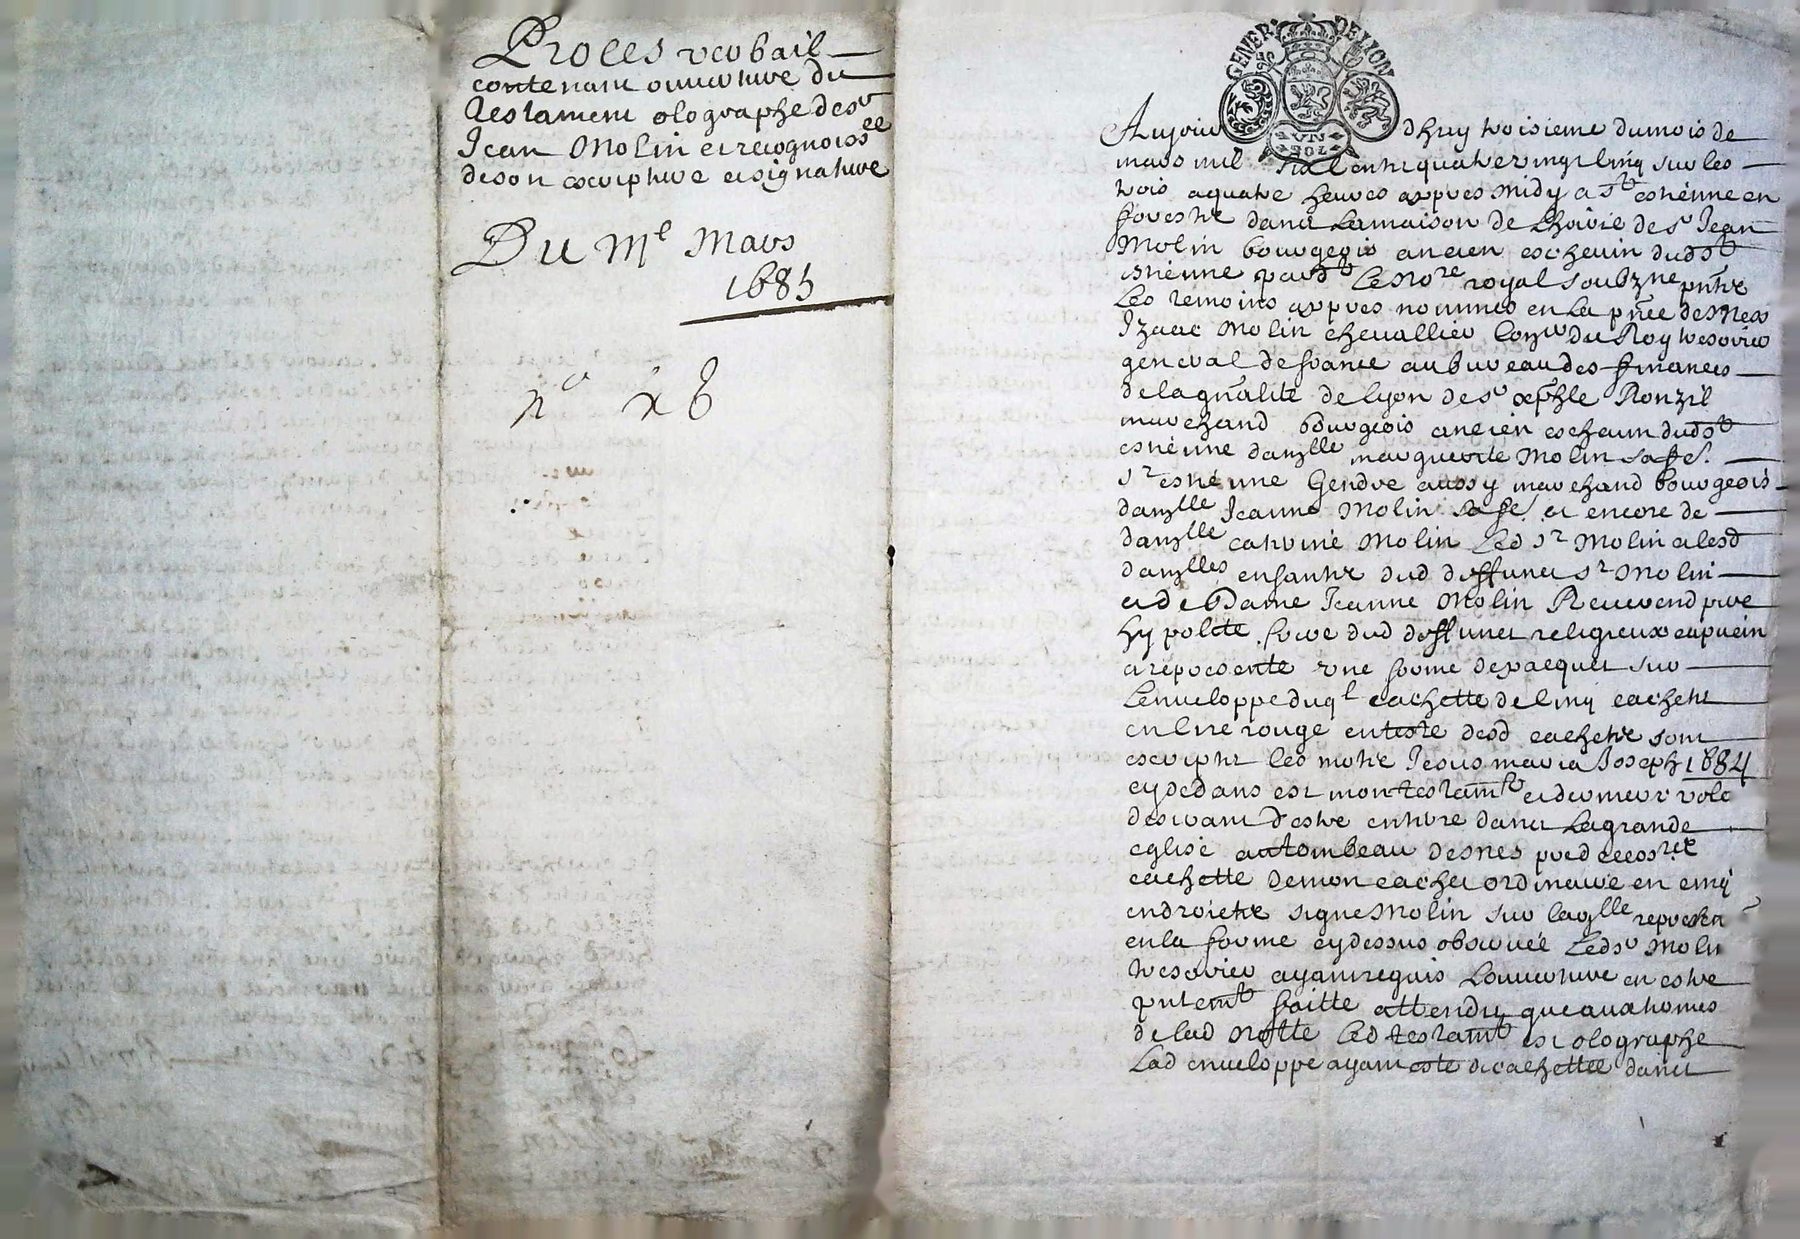 Proces verbail
contenant ouverture du
Testament olographe de sr
Jean Molin et recognoissee
de son escripture et signature
Du Me Mars
1685
n° x 8
GENER. DE LYON
UN SOL
Aujourdhuy troisieme du mois de
mars mil six cents quatre vingt cinq sur les
trois a quatre heures appres midy a St estienne en
forestz dans la maison de lhoirie de sr Jean
Molin bourgeois ancien eschevin dud St
estienne pardt le nore royal soubzne pntz
les temoins appres nommes en la pnce de Mess
Izaac Molin chevallier conser du Roy tresorier
general de france au bureau des finances
de la gnalité de lyon de sr Ronzil
marchand bourgeois ancien eschevin dud St
estienne damzlle marguerite Molin sa fe.
sr estienne Gendre aussy marchand bourgeois
damzlle Jeanne Molin sa fe. et encore de
damzlle catrine Molin led sr Molin et lesd
damzlles enfantz dud deffunct sr Molin
et de Dame Jeanne Molin Reverend pere
hypolite frere dud deffunct religieux capucin
a representé une forme de pacquet sur
lenveloppe duql cachette de cinq cachetz
en cire rouge en teste desd cachetz sont
escriptz les motz Jesus maria Joseph 1684
cy dedans est mon testamt et derniere volo
desirant destre enterré dans la grande
eglise au tombeau de mes predecessrs
cachette de mon cachet ordinaire en cinq
endroictz signe Molin sur laqlle represen
en la forme cy dessus observée led sr Molin
tresorier ayant requis louverture en estre
pntemt faitte attendu que aux termes
de lad notte led testamt est olographe
Lad enveloppe ayant este decachettee dans